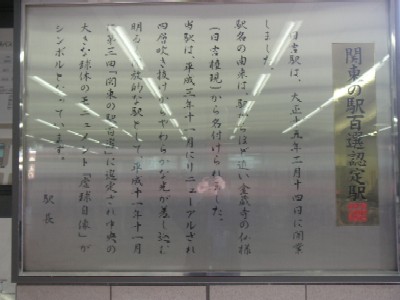 関東の駅百選認定駅
日吉駅は、大正十五年二月十四日に開業
しました。
駅名の由来は、駅からほど近い金蔵寺の仏様
(日吉権現)から名付けられました。
当駅は、平成三年十一月にリニューアルされ
四層吹き抜けからやわらかな光が差し込む
明るい開放的な駅として平成十一年十一月
第三回「関東の駅百選」に選定され中央の
大きな球体のモニュメント「虚球自像」が
シンボルとなっています。
駅長